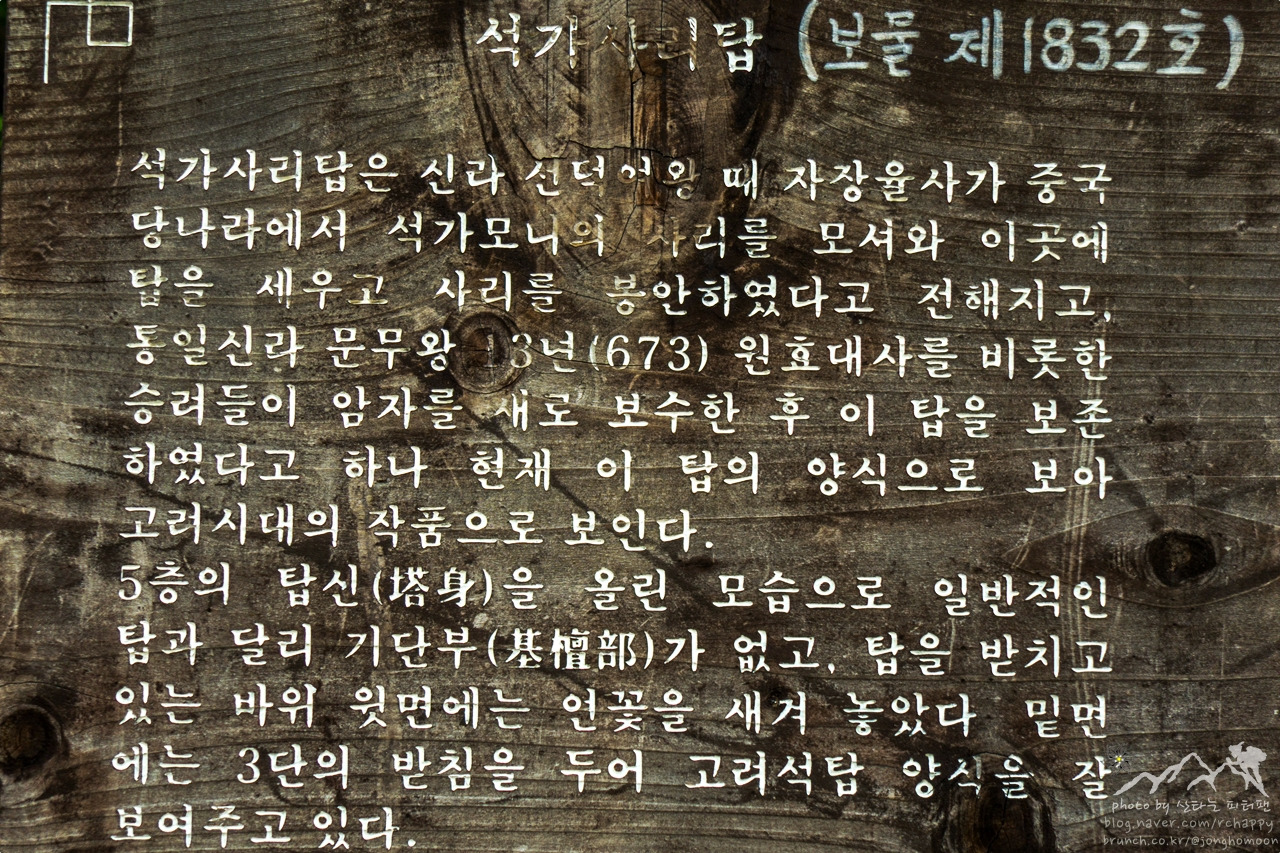 석가사리탑 (보물 제1832호)
석가사리탑은 신라 선덕여왕 때 자장율사가 중국
당나라에서 석가모니의 사리를 모셔와 이곳에
탑을 세우고 사리를 봉안하였다고 전해지고,
통일신라 문무왕 13년(673) 원효대사를 비롯한
승려들이 암자를 새로 보수한 후 이 탑을 보존
하였다고 하나 현재 이 탑의 양식으로 보아
고려시대의 작품으로 보인다.
5층의 탑신(塔身)을 올린 모습으로 일반적인
탑과 달리 기단부(基檀部)가 없고, 탑을 받치고
있는 바위 윗면에는 연꽃을 새겨 놓았다 밑면
에는 3단의 받침을 두어 고려석탑 양식을 잘
보여주고 있다.
photo by 산타는 피터팬
blog.naver.com/rchappy
brunch.co.kr/@jonghomoon